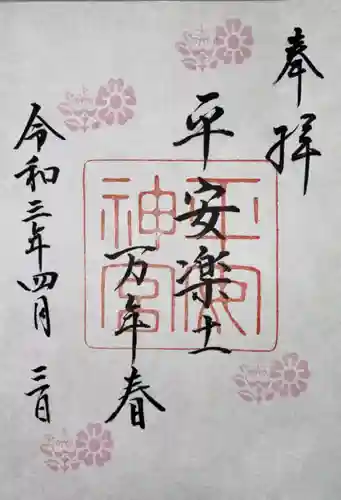 奉拝
平安楽土
万年春
令和三年四月三日
平安神宮